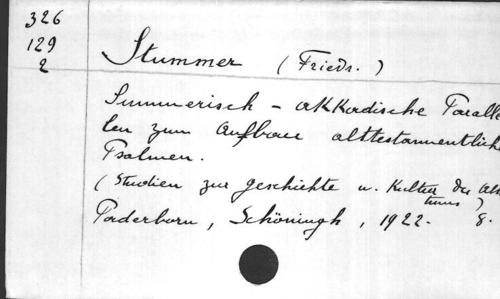 326
129
2
Stummer (Friedr.)
Summerisch - akkadische Paralle
len zum Aufbau alttestamentlich
Psalmen.
(Studien zur geschichte u. Kultur des Alt
tums)
Paderborn, Schöningh, 1922. 8.